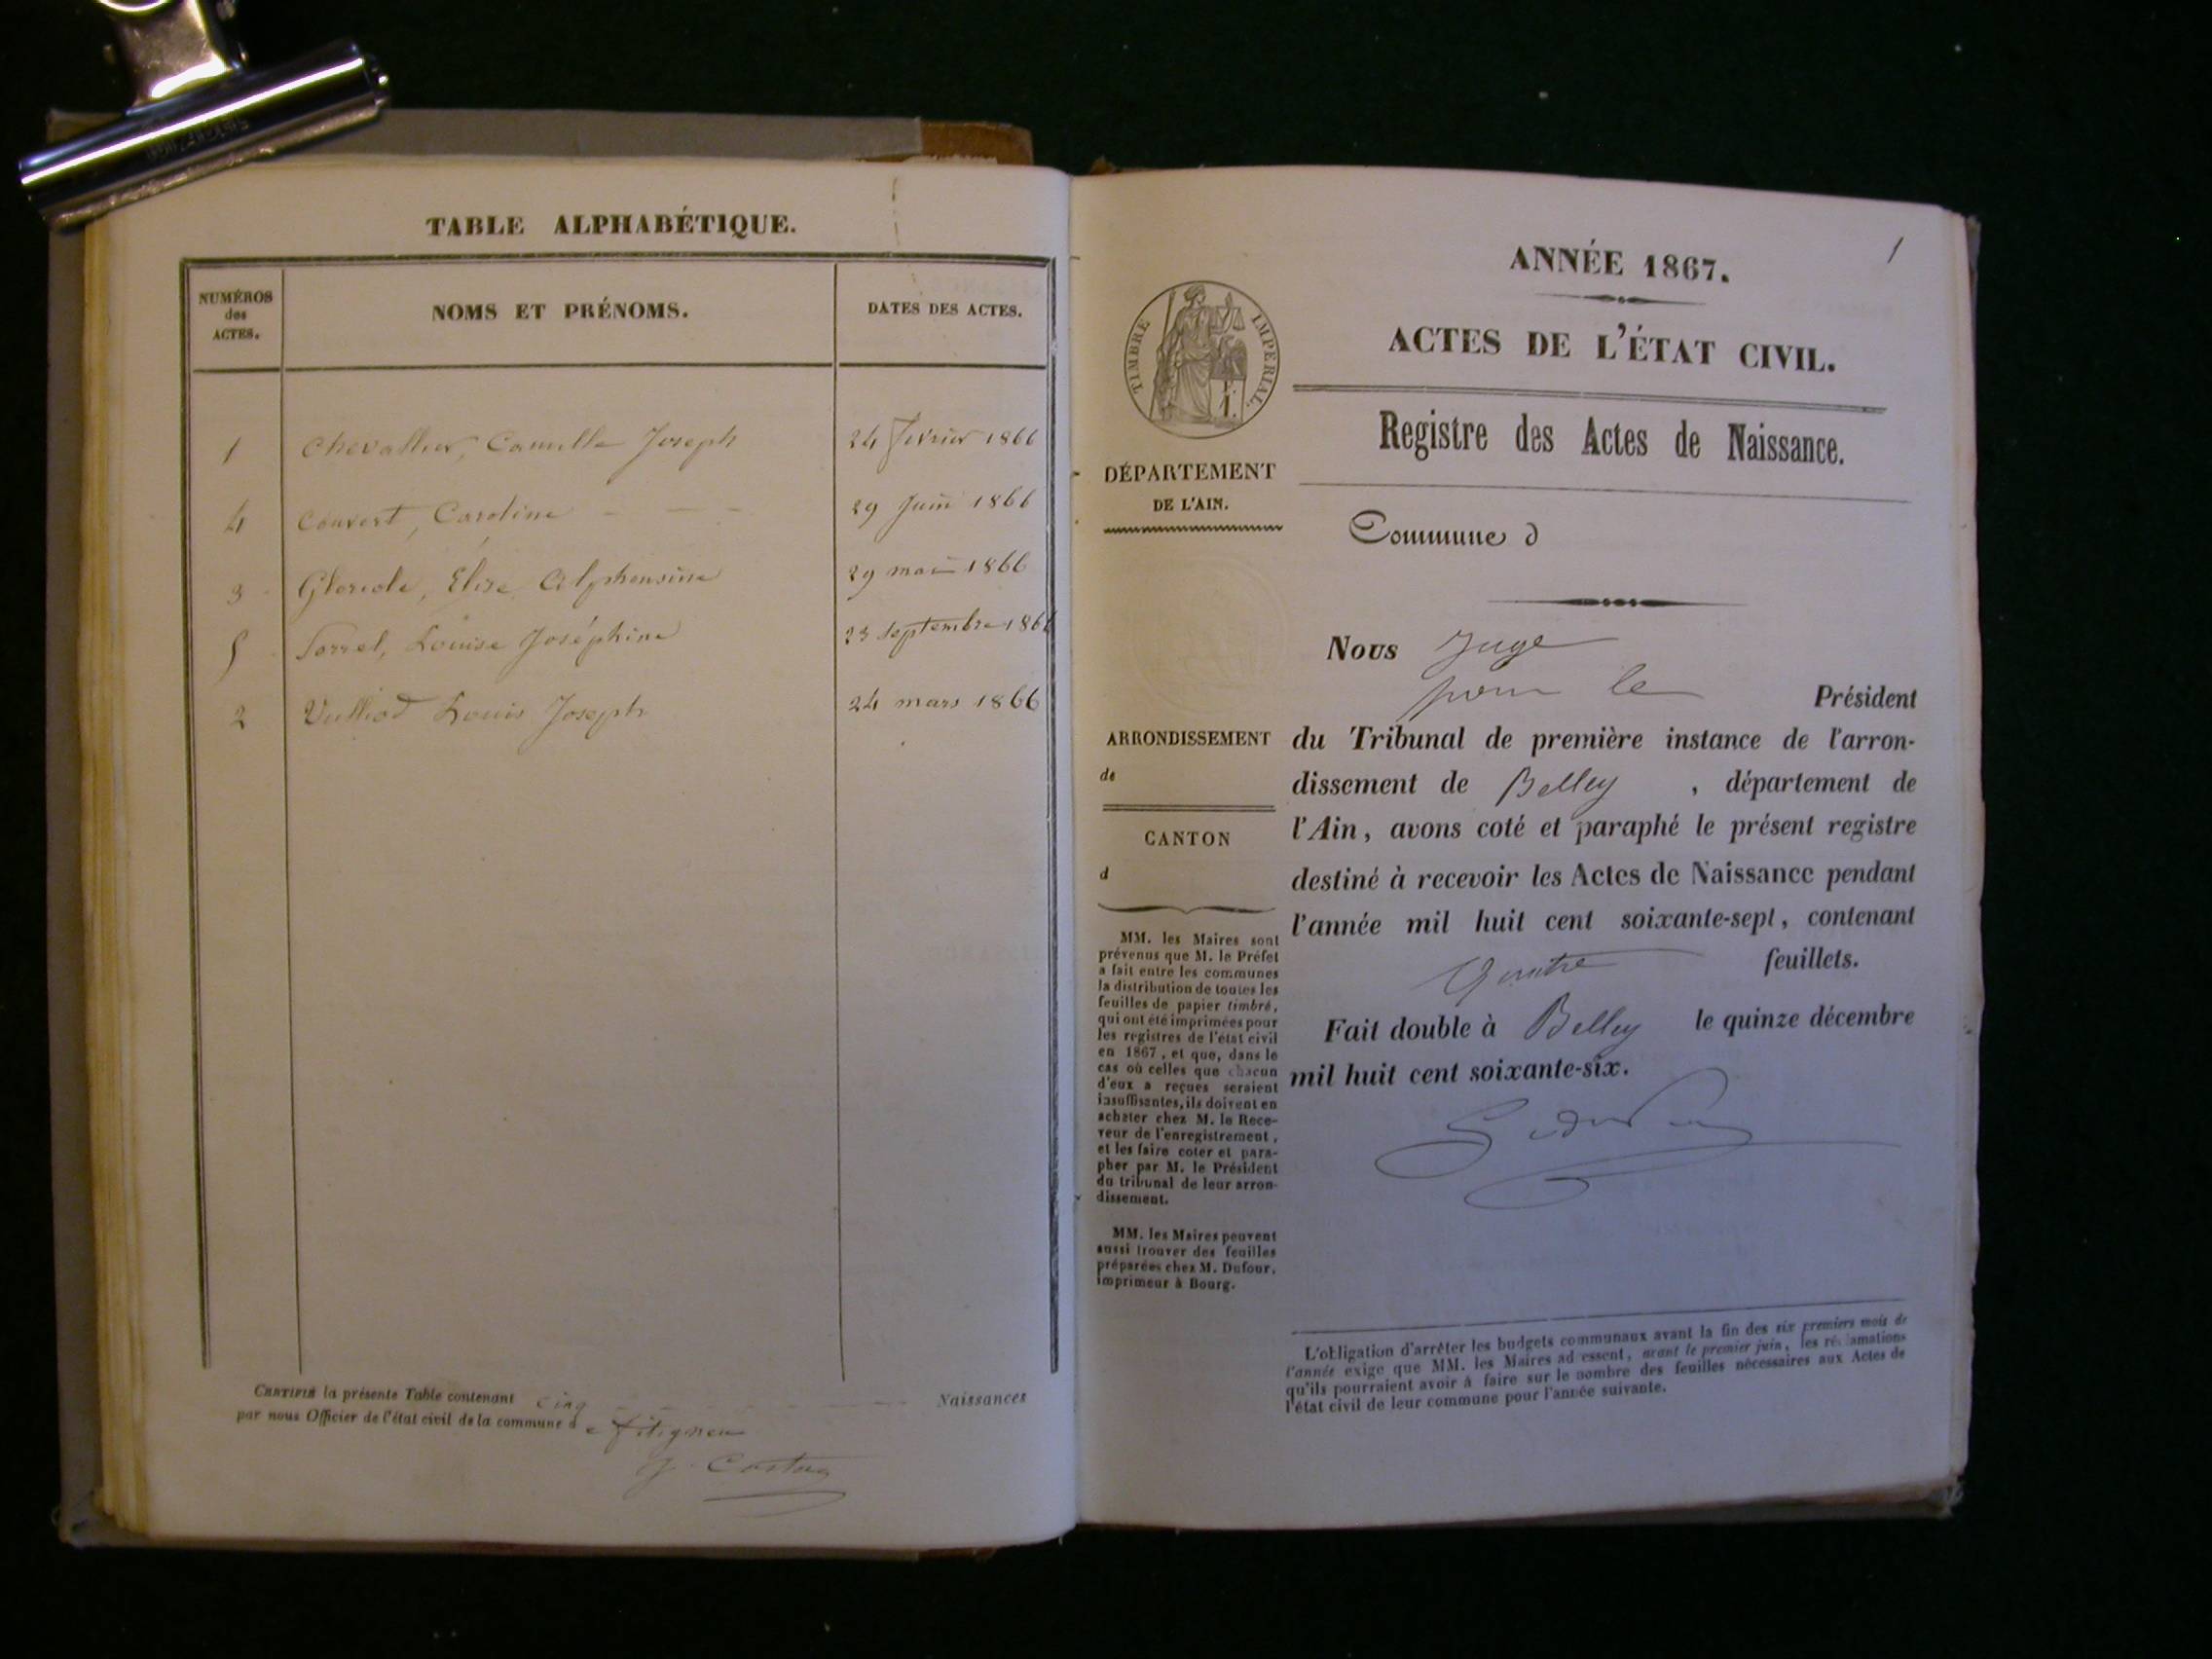 TABLE ALPHABÉTIQUE.
NUMÉROS
des
ACTES.
NOMS ET PRÉNOMS.
DATES DES ACTES.
1 Chevallier, Camille Joseph 24 février 1866
4 Couvert, Caroline - - - 29 Juin 1866
3 Gloriole, Elise Alphonsine 29 mai 1866
5 Sorrel, Louise Joséphine 23 septembre 1866
2 Vulliod Louis Joseph 24 mars 1866
CERTIFIÉ la présente Table contenant cinq Naissances
par nous Officier de l'état civil de la commune de fitignieu
1
ANNÉE 1867.
ACTES DE L'ÉTAT CIVIL.
Registre des Actes de Naissance.
TIMBRE IMPERIAL.
DÉPARTEMENT
DE L'AIN.
Commune d
Nous Juge
pour le Président
du Tribunal de première instance de l'arron-
dissement de Belley , département de
l'Ain, avons coté et paraphé le présent registre
destiné à recevoir les Actes de Naissance pendant
l'année mil huit cent soixante-sept, contenant
quatre feuillets.
Fait double à Belley le quinze décembre
mil huit cent soixante-six.
ARRONDISSEMENT
de
CANTON
d
MM. les Maires sont
prévenus que M. le Préfet
a fait entre les communes
la distribution de toutes les
feuilles de papier timbré,
qui ont été imprimées pour
les registres de l'état civil
en 1867, et que, dans le
cas où celles que chacun
d'eux a reçues seraient
insuffisantes, ils doivent en
acheter chez M. le Rece-
veur de l'enregistrement,
et les faire coter et para-
pher par M. le Président
du tribunal de leur arron-
dissement.
MM. les Maires peuvent
aussi trouver des feuilles
préparées chez M. Dufour,
imprimeur à Bourg.
L'obligation d'arrêter les budgets communaux avant la fin des six premiers mois de
l'année exige que MM. les Maires adressent, avant le premier juin, les réclamations
qu'ils pourraient avoir à faire sur le nombre des feuilles nécessaires aux Actes de
l'état civil de leur commune pour l'année suivante.